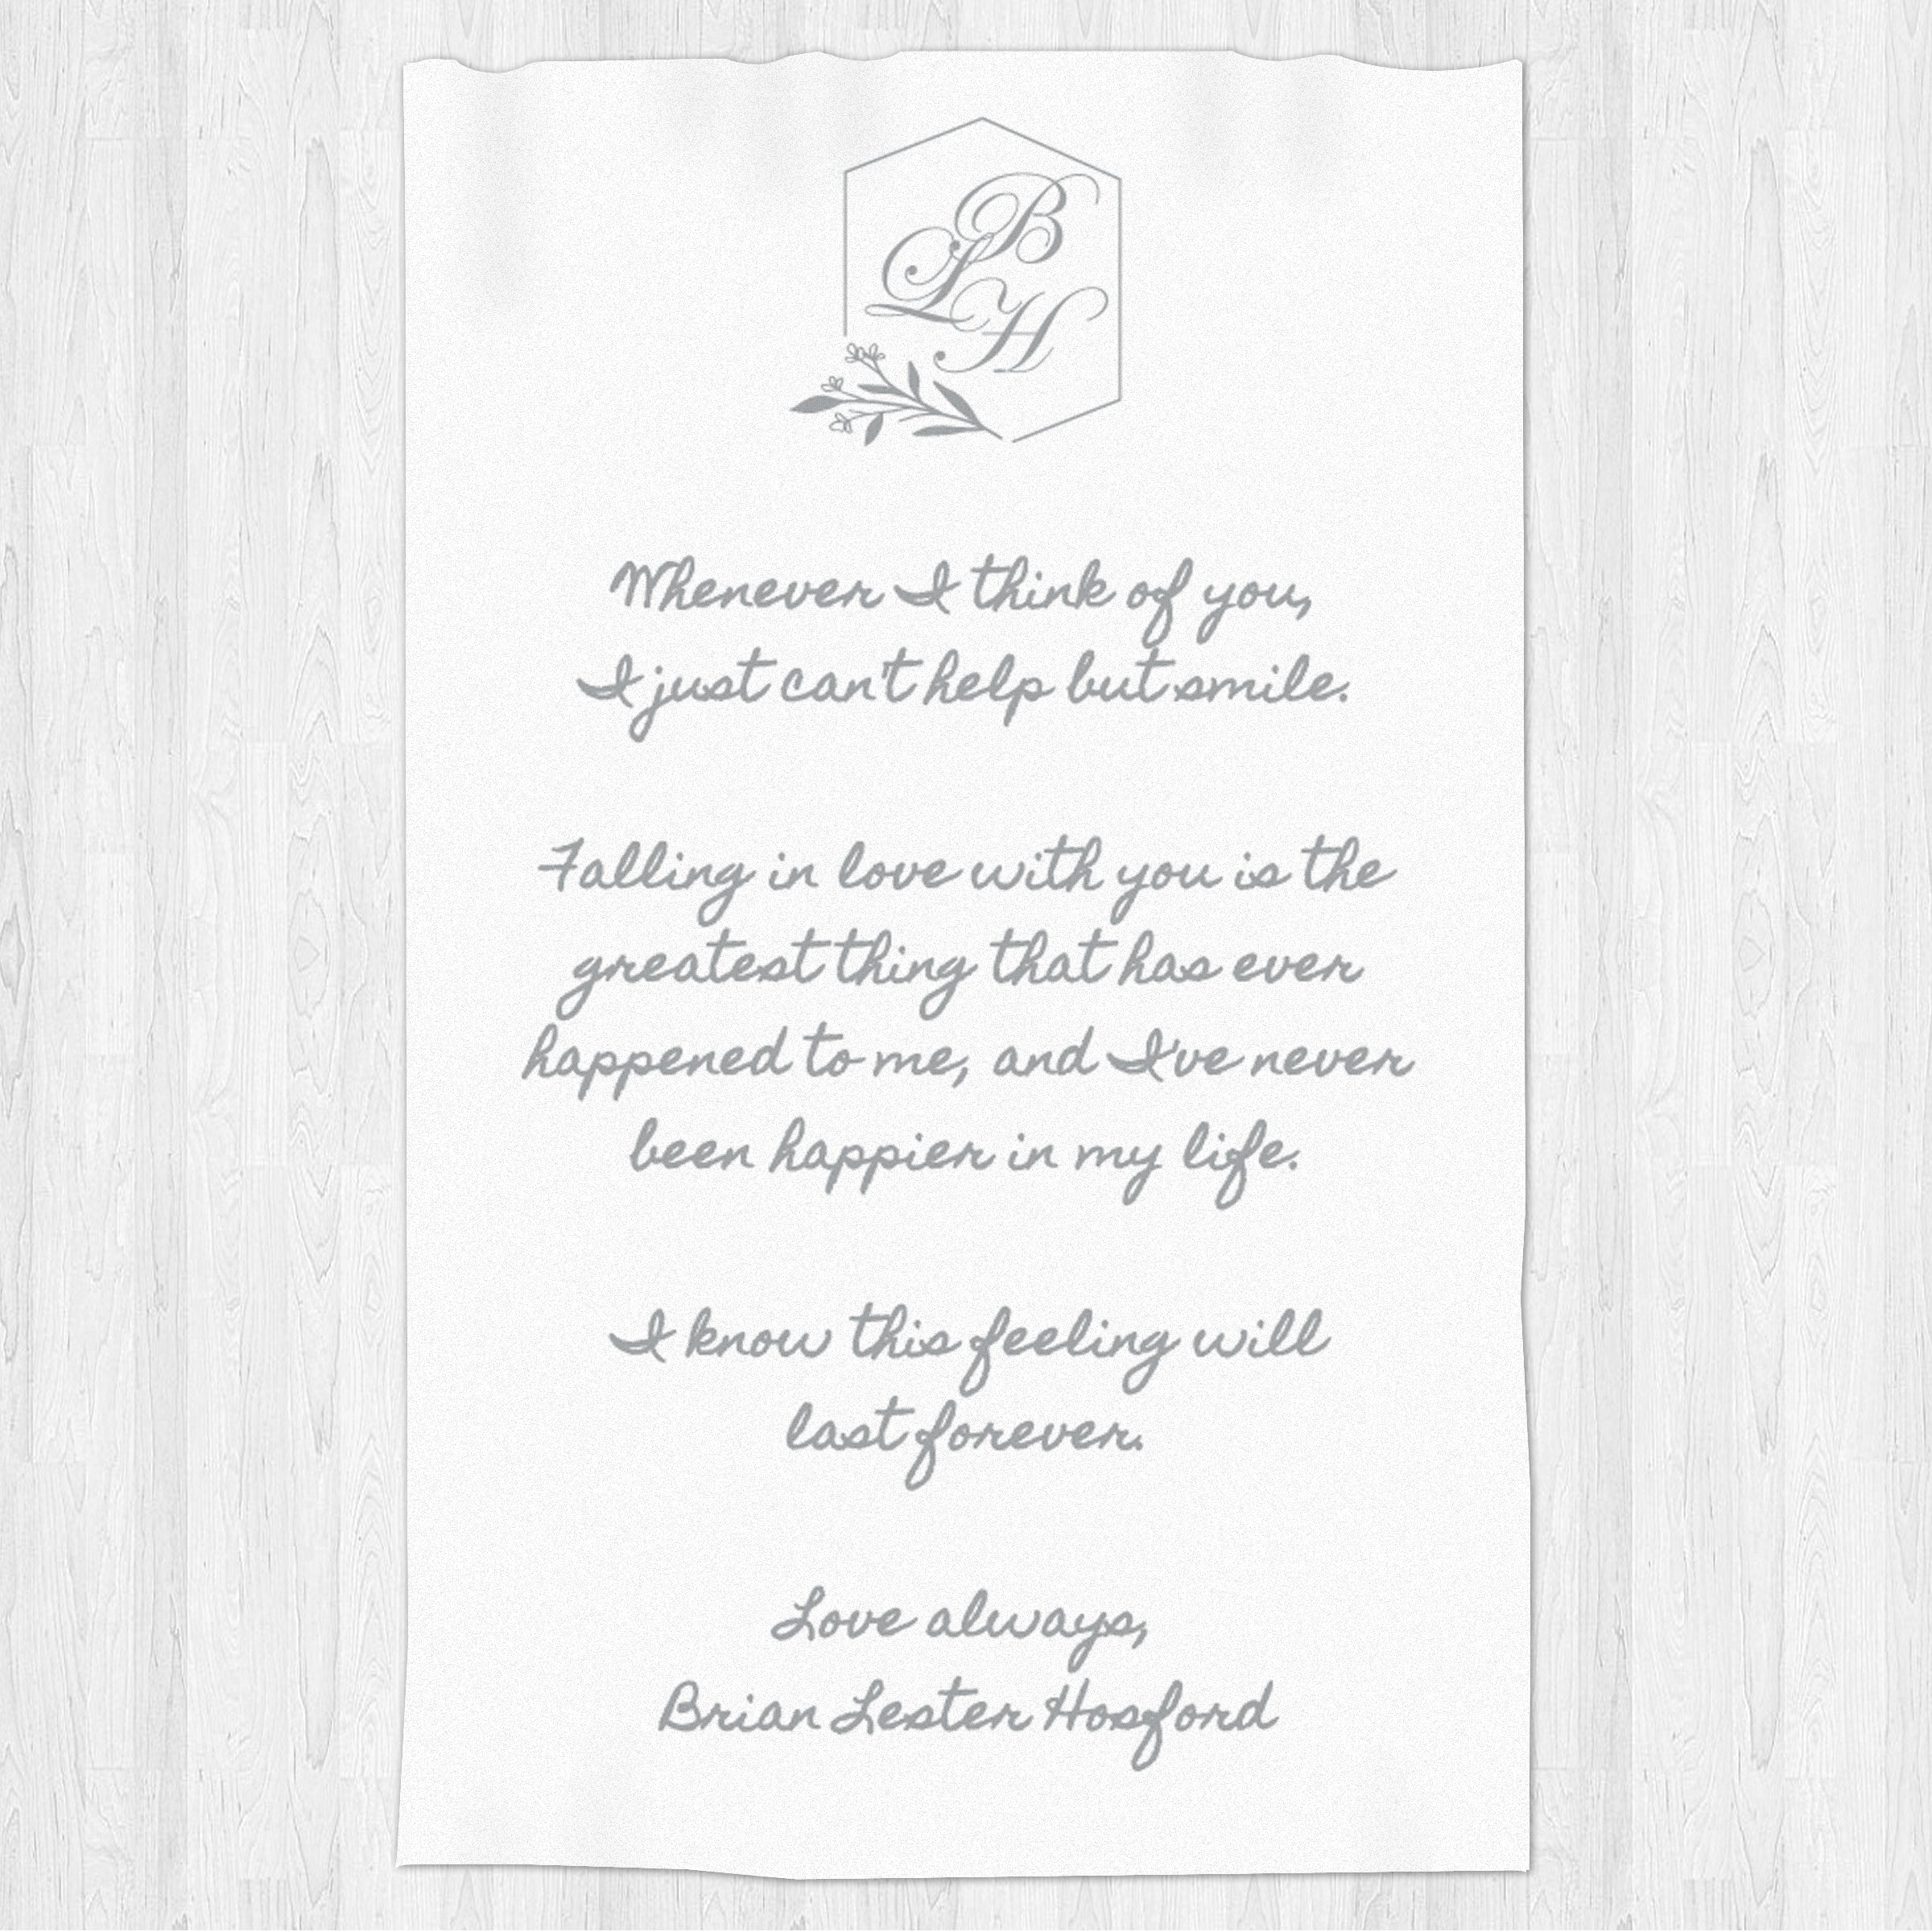 B
L
H
Whenever I think of you,
I just can't help but smile.
Falling in love with you is the
greatest thing that has ever
happened to me, and I've never
been happier in my life.
I know this feeling will
last forever.
Love always,
Brian Lester Hosford